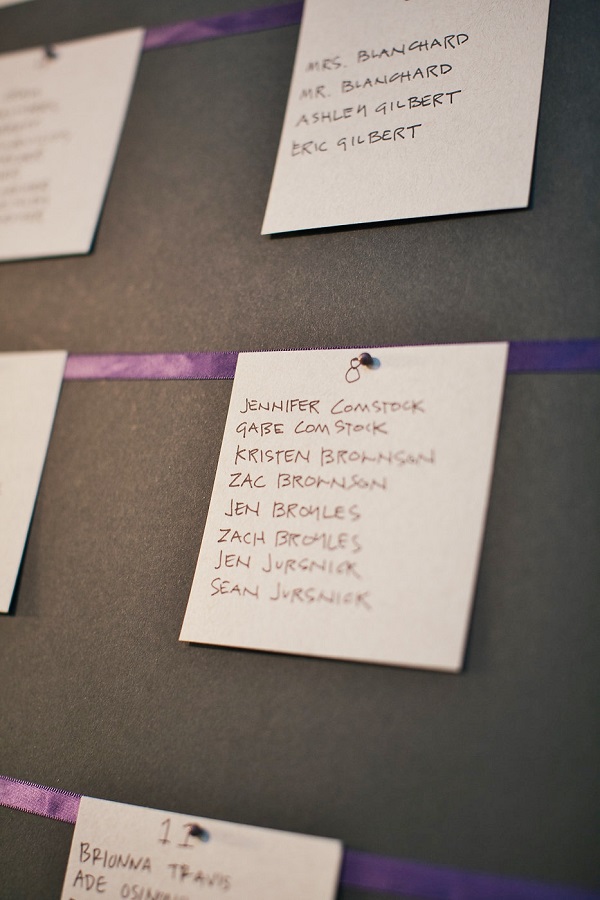 MRS. BLANCHARD
MR. BLANCHARD
ASHLEY GILBERT
ERIC GILBERT
8
JENNIFER COMSTOCK
GABE COMSTOCK
KRISTEN BROWNSON
ZAC BROWNSON
JEN BROYLES
ZACH BROYLES
JEN JURSNICK
SEAN JURSNICK
11
BRIONNA TRAVIS
ADE